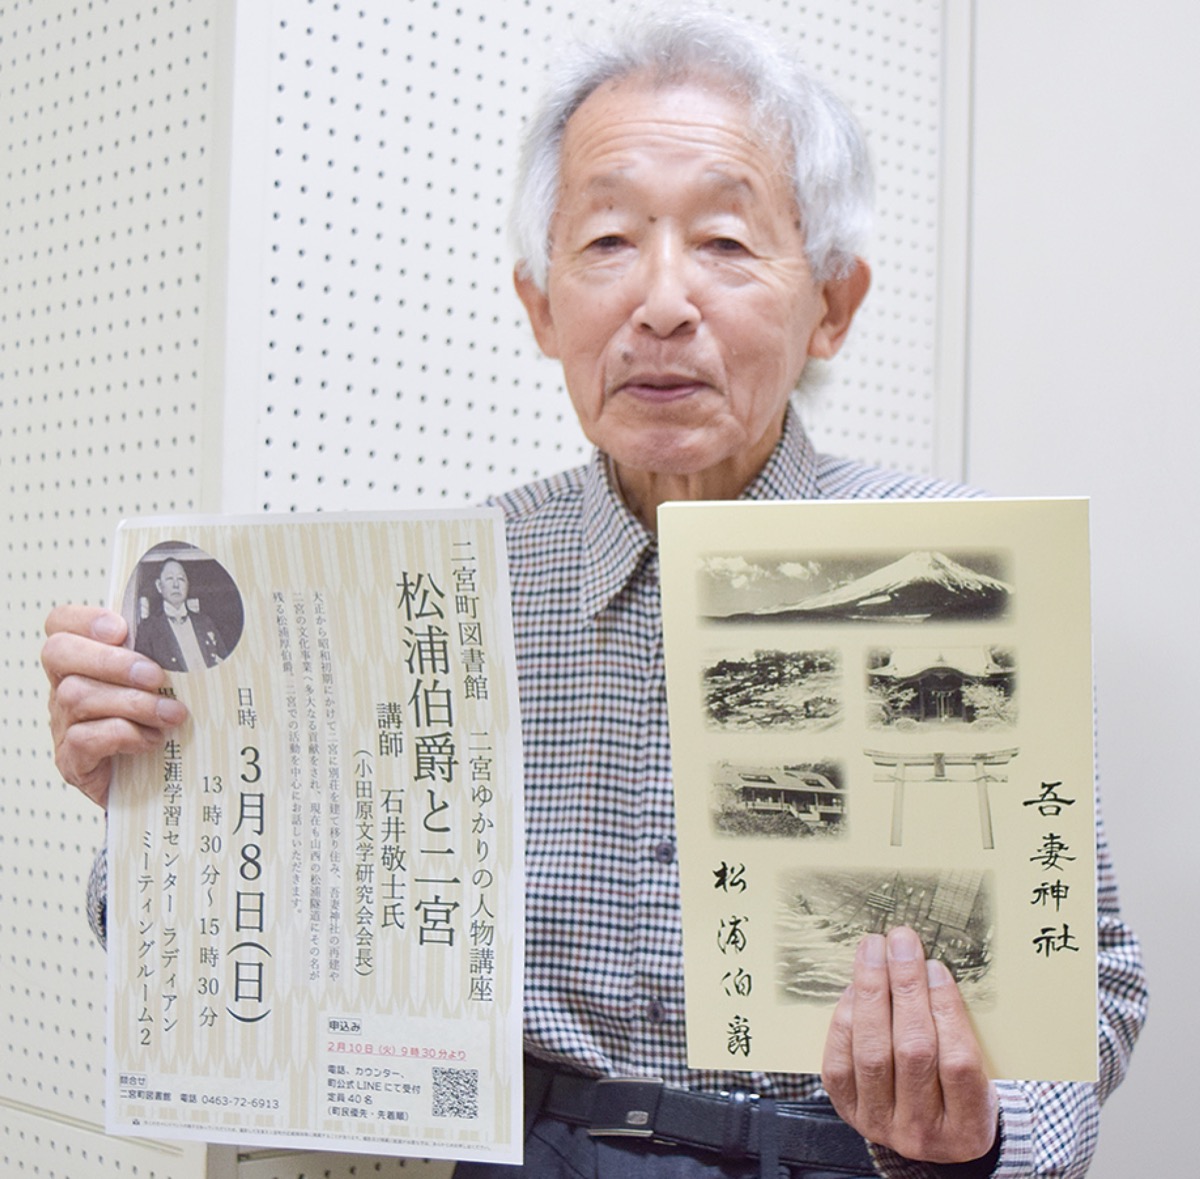 二宮町図書館 二宮ゆかりの人物講座
松浦伯爵と二宮
講師 石井敬士氏
(小田原文学研究会会長)
大正から昭和初期にかけて二宮に別荘を建て移り住み、吾妻神社の再建や
二宮の文化事業へ多大なる貢献をされ、現在も山西の松浦隧道にその名が
残る松浦厚伯爵、二宮での活動を中心にお話しいただきます。
日時 3月8日(日)
13時30分~15時30分
生涯学習センター ラディアン
ミーティングルーム2
申込み
2月10日(火)9時30分より
電話、カウンター、
町公式LINEにて受付
定員40名
(町民優先・先着順)
問合せ
二宮町図書館 電話 0463-72-6913
吾妻神社
松浦伯爵